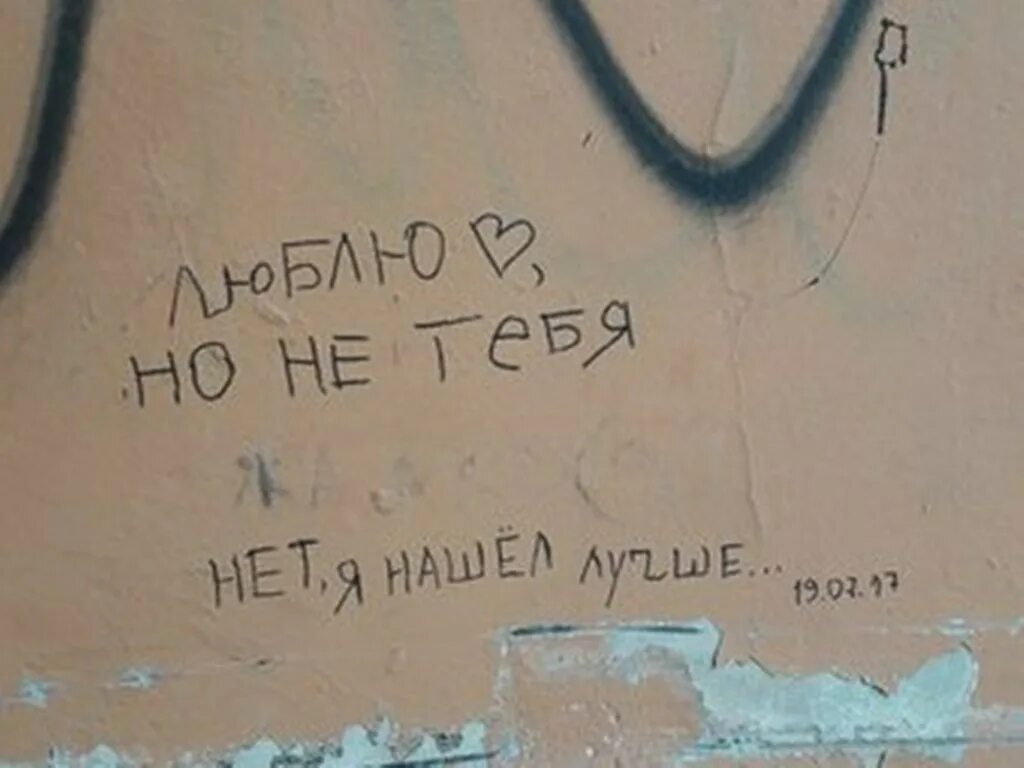 ЛЮБЛЮ ♡,
НО НЕ ТЕБЯ
НЕТ, Я НАШЁЛ ЛУЧШЕ... 19.07.17